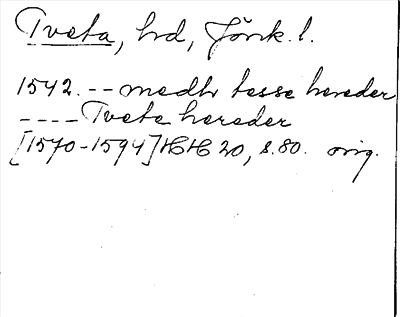 Tveta, hd, Jönk. l.
1542. -- medh tesse hereder
---- Tvete hereder
[1570-1594] HH 20, s. 80. orig.